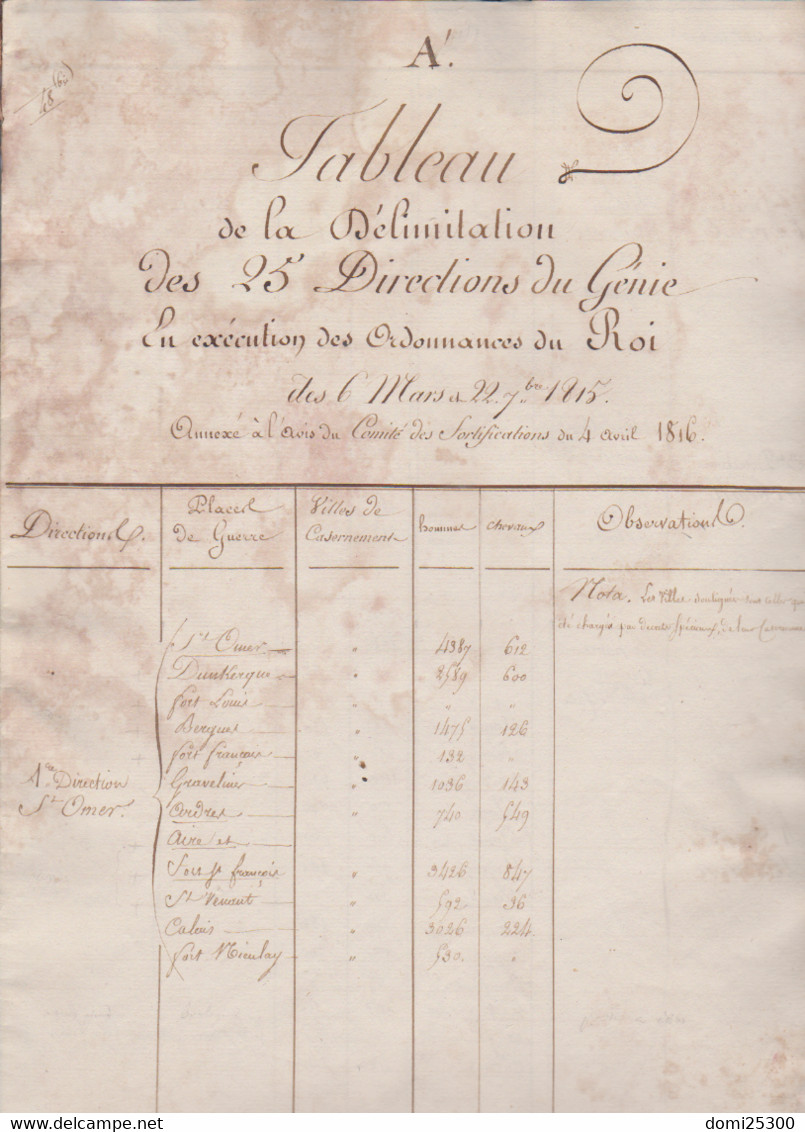 A'.
48 (bis)
Tableau
de la Délimitation
des 25 Directions du Génie
En exécution des Ordonnances du Roi
des 6 Mars & 22. 7.bre 1815.
Annexé à l'Avis du Comité des Fortifications du 4 avril 1816.
Directions. Places de Guerre Villes de Casernement hommes chevaux Observations.
Nota. Les Villes soulignées sont celles qui
été chargés par décrets spéciaux, de leur Casernement
St Omer. " 4387 612
Dunkerque " 2589 600
fort Louis " " "
Bergues " 1475 126
fort français " 132 "
1re Direction
St Omer.
Gravelines " 1036 143
Ardres " 740 549
Aire et
Fort St françois " 3426 847
St Venant " 592 36
Calais " 3026 224.
fort Nieulay " 530. "
domi25300